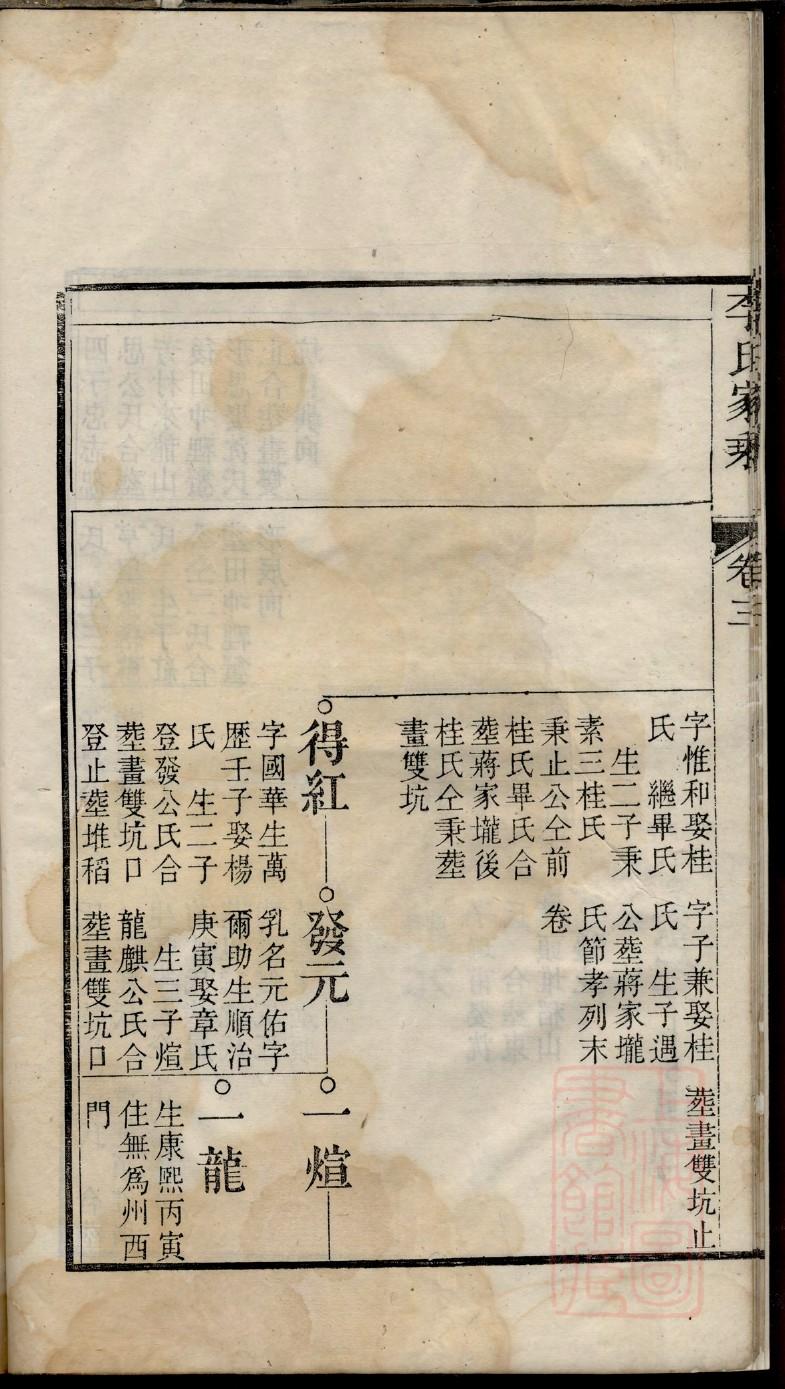 李氏家乘
卷三
字惟和娶桂
氏 繼畢氏
生二子秉
素三桂氏
秉止公仝前
桂氏畢氏合
塟蔣家壠後
桂氏仝秉塟
畫雙坑
字子兼娶桂
氏 生子遇
公塟蔣家壠
氏節孝列末
卷
塟畫雙坑止
得紅
字國華生萬
歷壬子娶楊
氏 生二子
登發公氏合
塟畫雙坑口
登止塟堆稻
發元
乳名元佑字
爾助生順治
庚寅娶章氏
生三子煊
龍麒公氏合
塟畫雙坑口
一煊
一龍
生康熙丙寅
住無爲州西
門